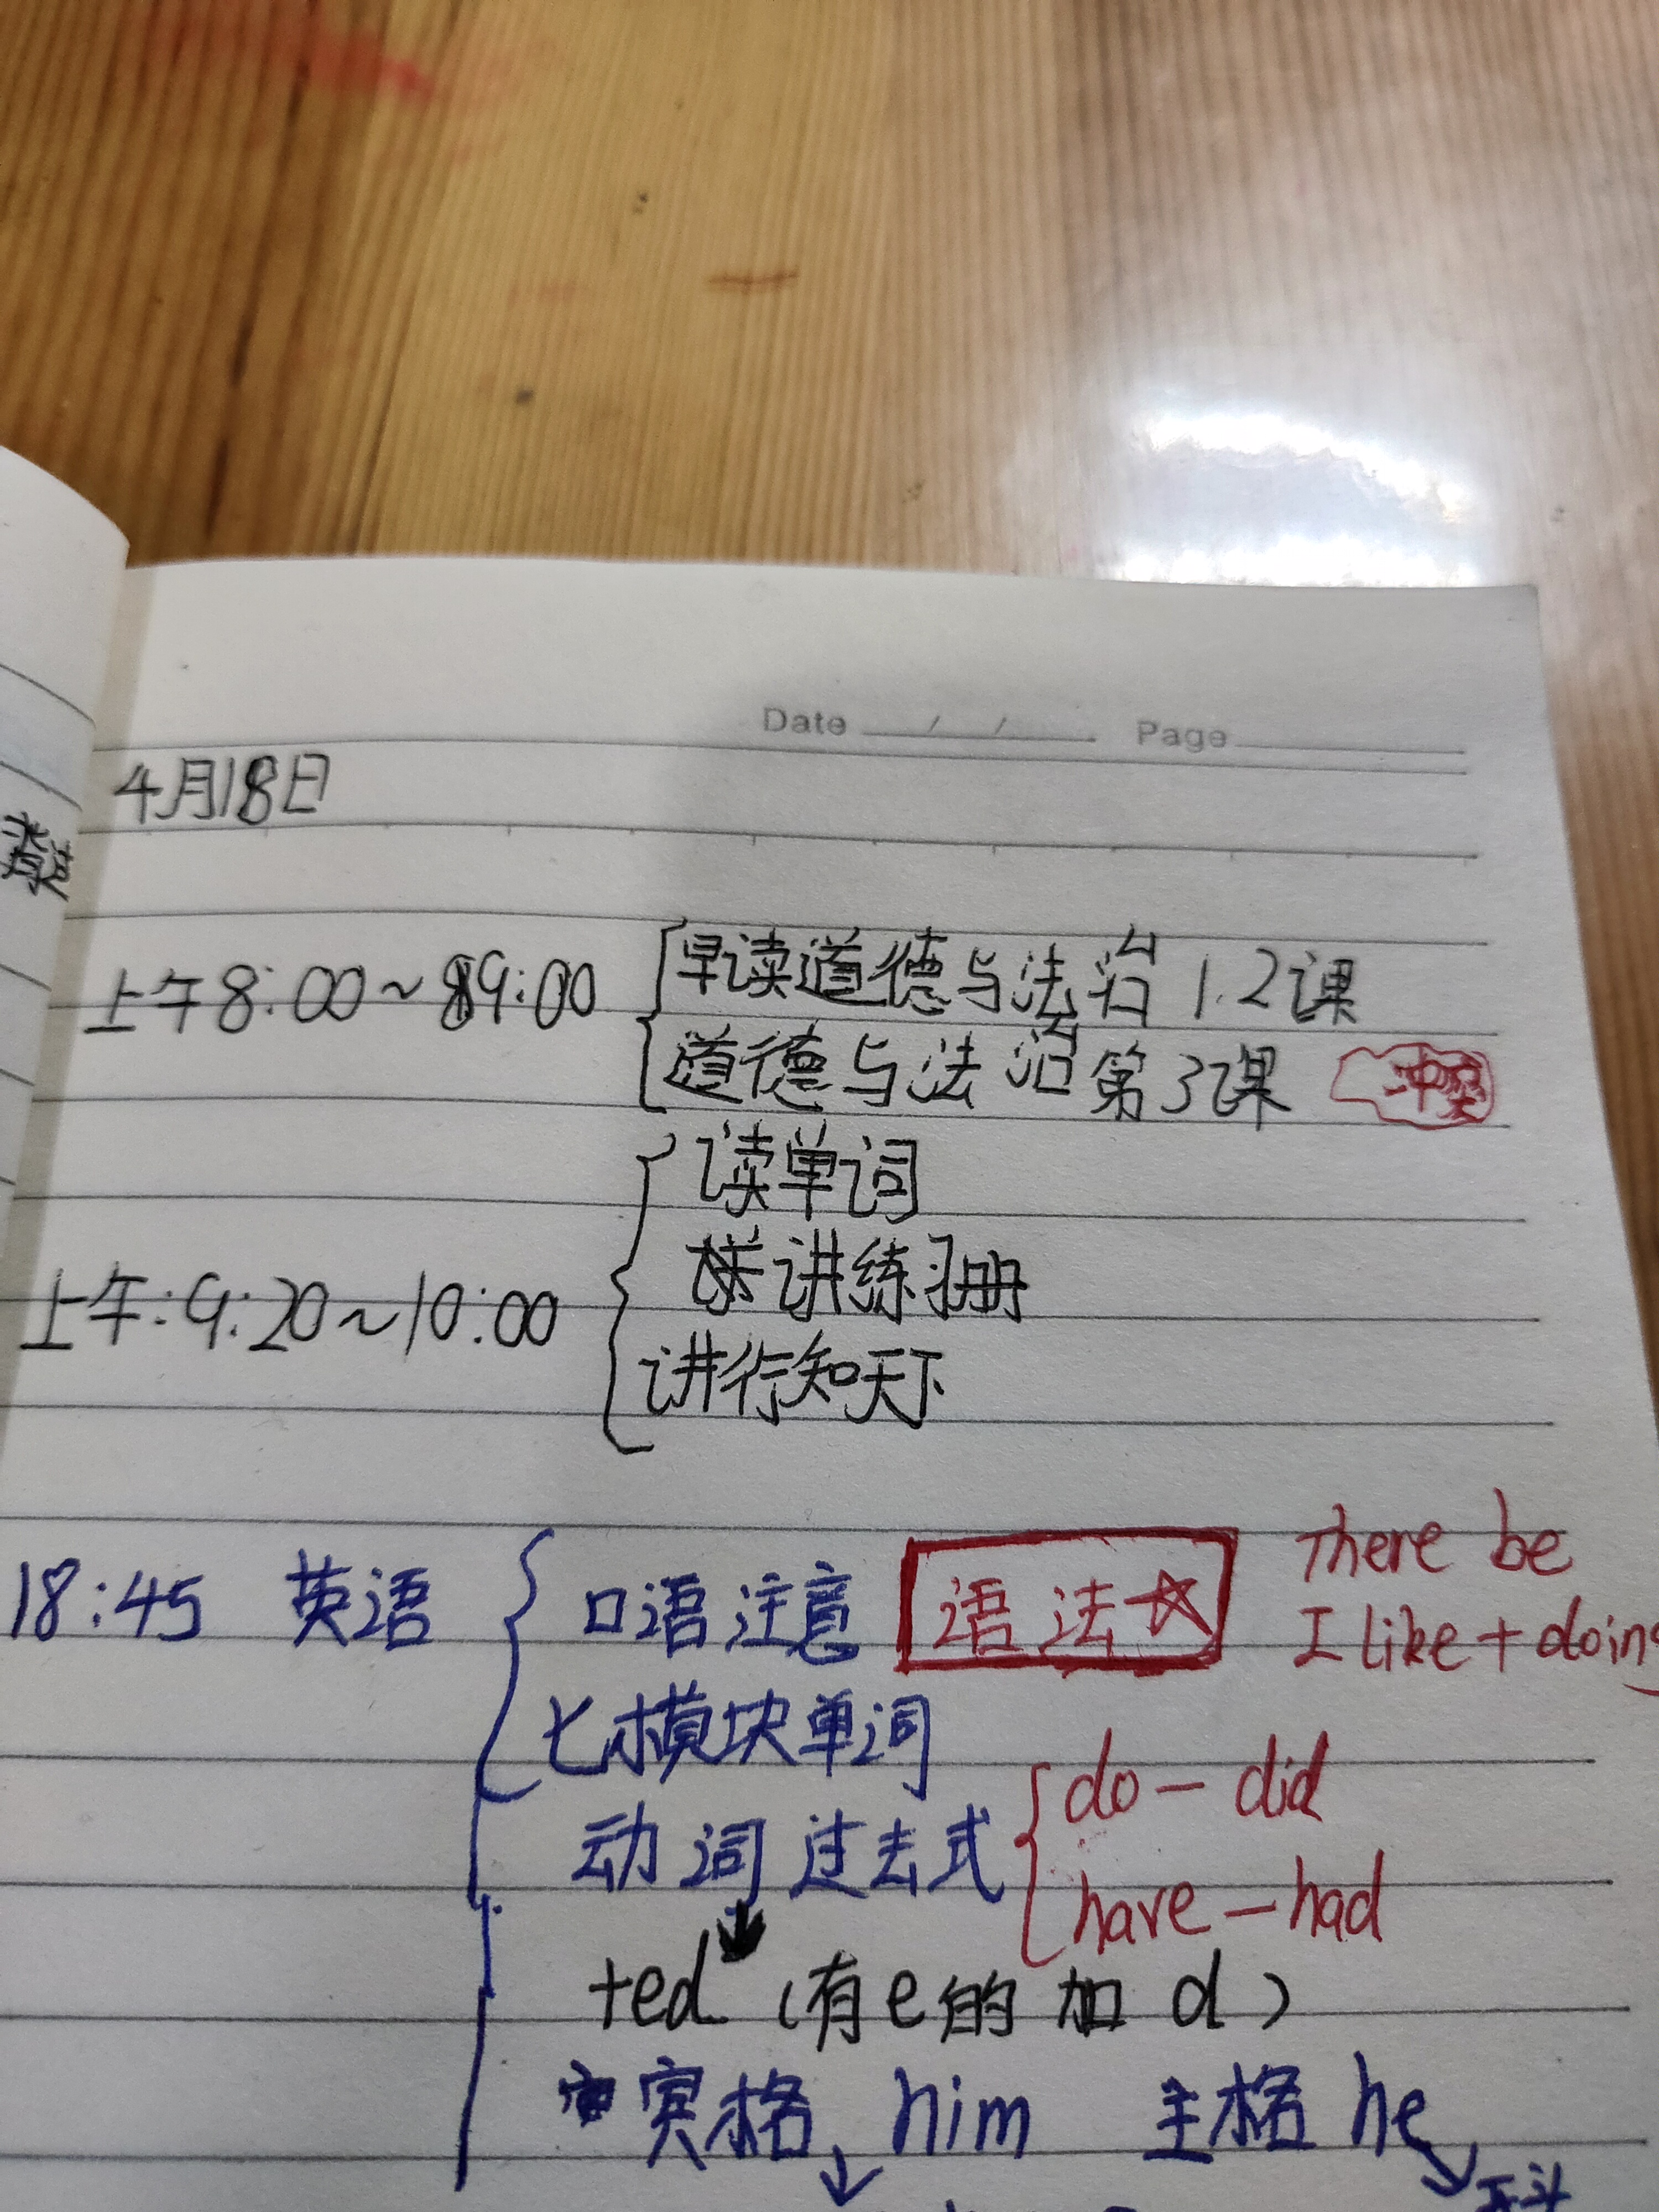 Date / / Page
4月18日
上午8:00~9:00
早读道德与法治 1.2课
道德与法治第3课
上午:9:20~10:00
读单词
讲练习册
讲行知天下
18:45 英语
口语注意 语法☆ There be
I like+doing
七模块单词
动词过去式
do—did
have—had
+ed (有e的加d)
宾格 him 主格 he